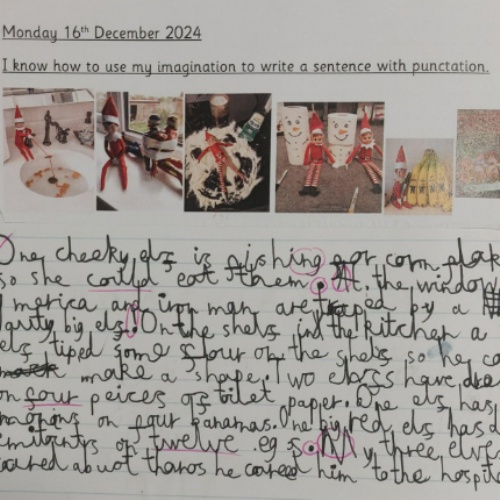 Monday 16th December 2024
I know how to use my imagination to write a sentence with punctation.
One cheeky elf is fishing for corn flak
so she could eat them. At the window
America and iron man are traped by a
big elf. On the shelf in the kitchen a
elf tiped some flour on the shelf so he co
make a shape. Two elfs have
on four peices of toilet paper. One elf has
on four bananas. One big red elf has
of twelve egs. My three elve
abuot thanos he him to the hospit